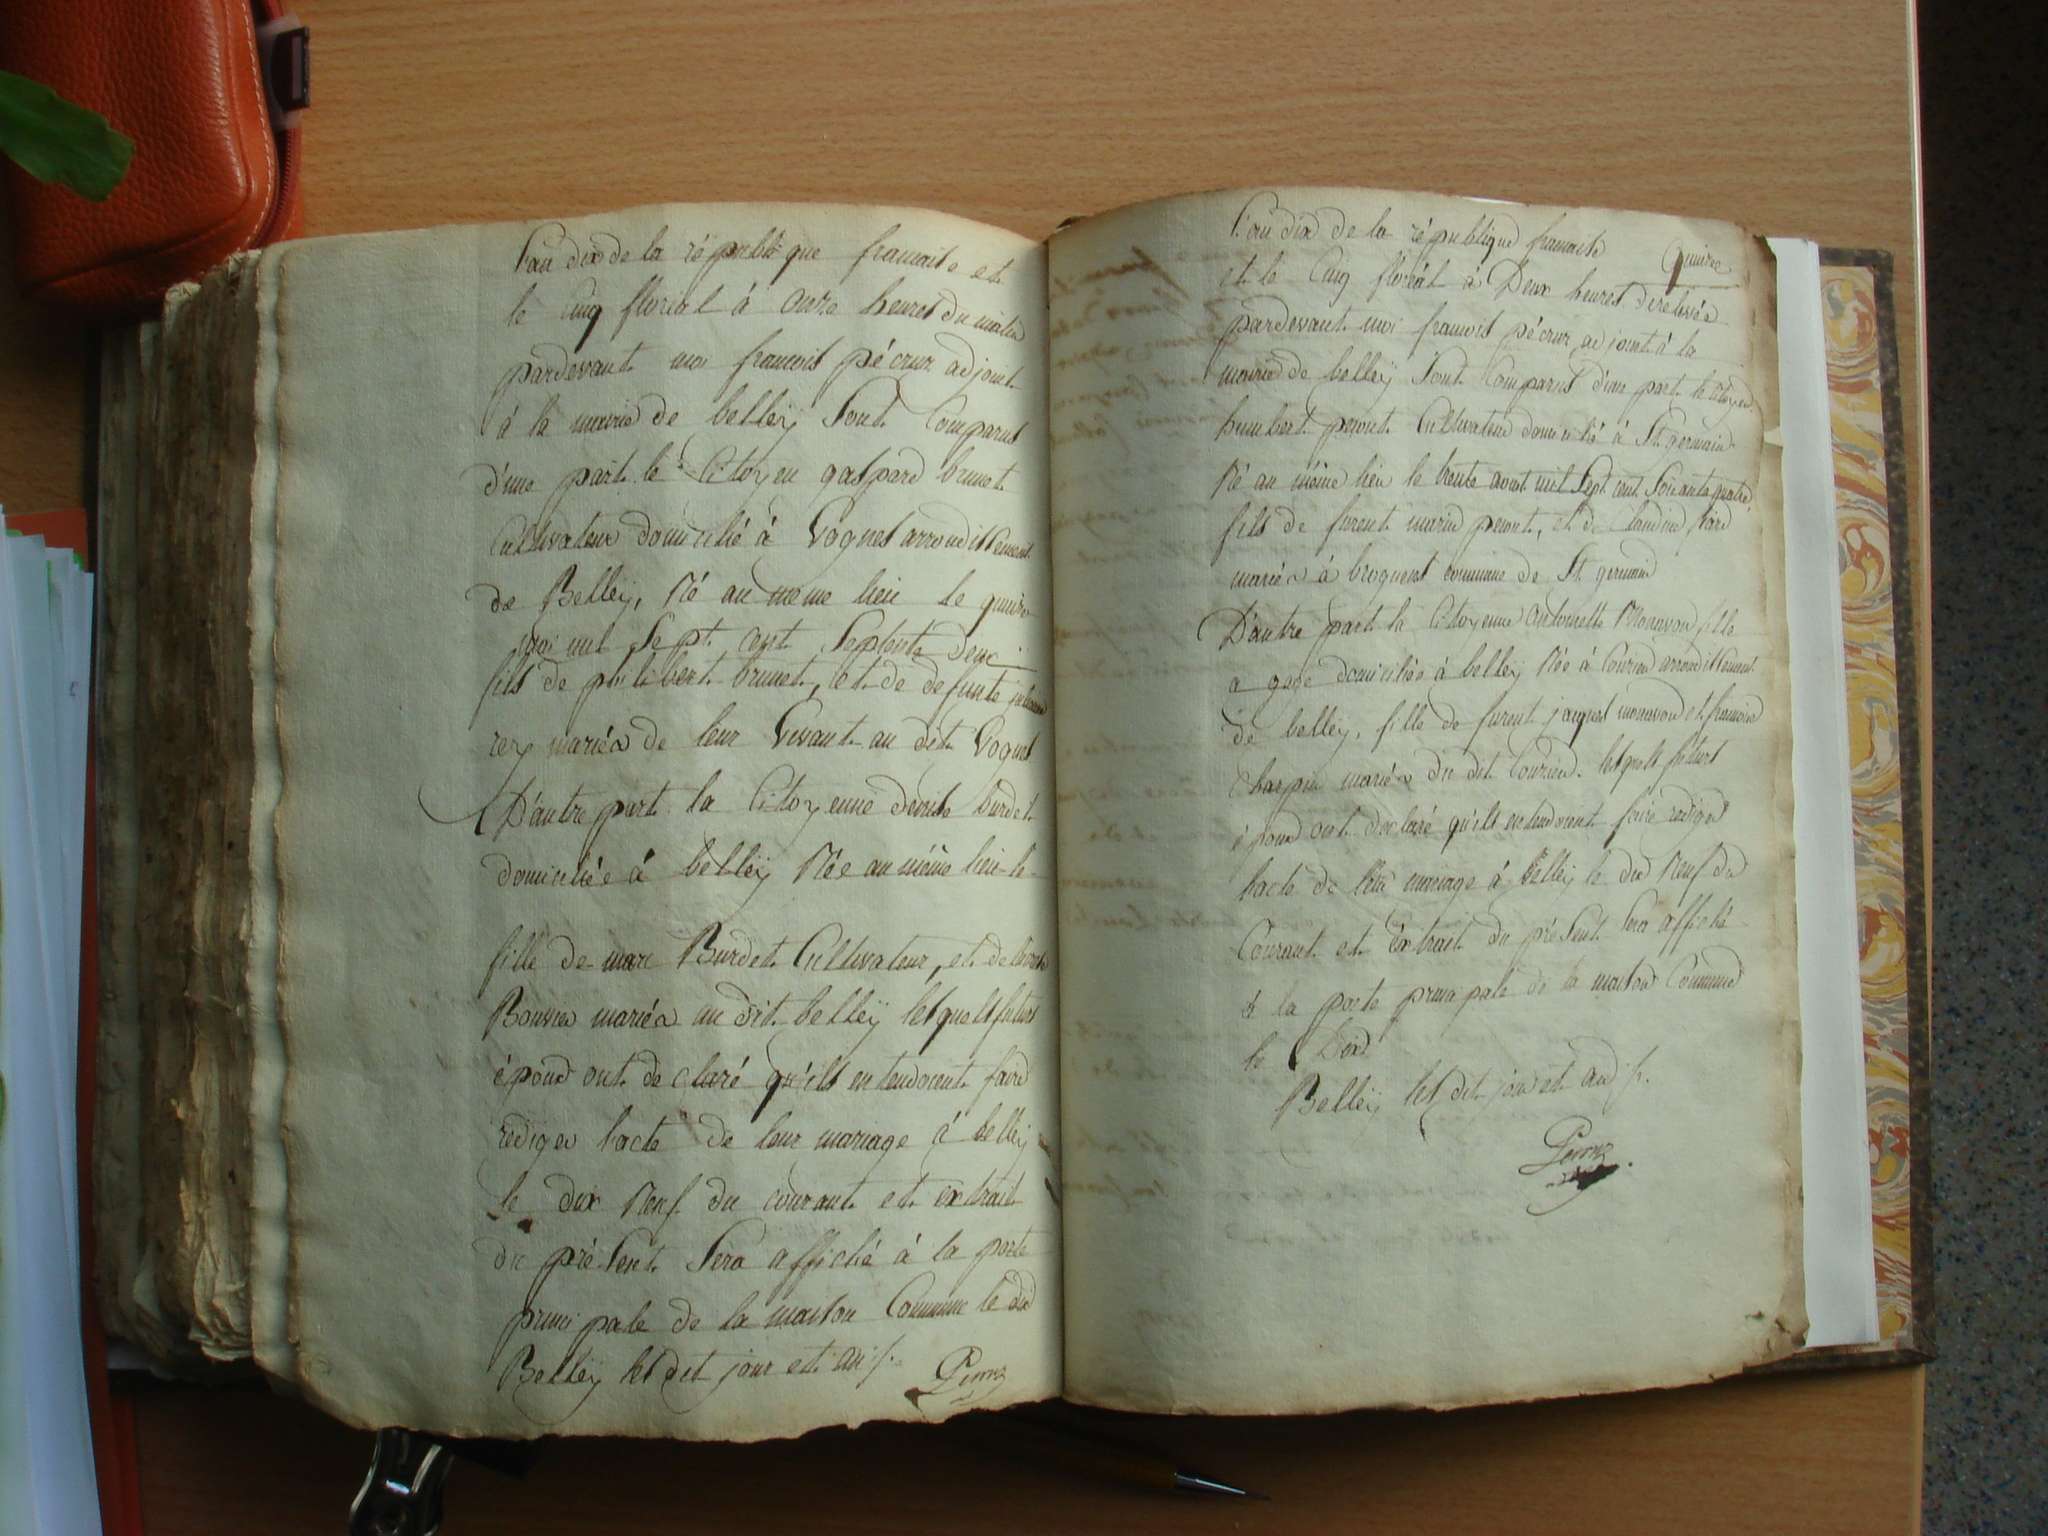 l'an dix de la république francaise et
le cinq florial à onze heures du matin
pardevant moi francois pécruz adjoint
à la mairie de belleÿ sont Comparus
d'une part le Citoyen gaspard brunet
Cultivateur domicilié à Vognes arrondissement
de Belleÿ, Né au même lieu le quinze
mai mil sept cent septente deux
fils de philibert brunet, et de defunte
rey mariés de leur Vivant au dit Vognes
D'autre part la Citoyenne denise burdet
domiciliée à belleÿ Née au même lieu le
fille de marc Burdet Cultivateur, et de
Bouvier mariés au dit belleÿ lesquels futurs
époux ont declaré qu'ils entendoient faire
rediger l'acte de leur mariage à belleÿ
le dix Neuf du courant et extrait
du présent sera affiché à la porte
principale de la maison Commune le dix
Belleÿ les dit jour et an /.
l'an dix de la république francaise
Quinze
et le Cinq floréal à Deux heures de relevée
pardevant moi francois pécruz adjoint à la
mairie de belleÿ sont Comparus d'une part le citoyen
humbert peront Cultivateur domicilié à St. germain
Né au même lieu le trente aout mil sept cent soixante quatre
fils de furent marin peront, et de Claudine
mariés à brognens commune de St. germain
D'autre part la Citoyenne antoinette Monavon fille
a gage domiciliée à belleÿ Née à Courzieu arrondissement
de belleÿ, fille de furent jaques monavon et francoise
Charpin mariés du dit Courzieu. lesquels futurs
époux ont declaré qu'ils entendoient faire rediger
l'acte de leur mariage à Belleÿ le dix Neuf du
Courant et Extrait du présent sera affiché
à la porte principale de la maison Commune
le Dix
Belleÿ les dit jour et an /.